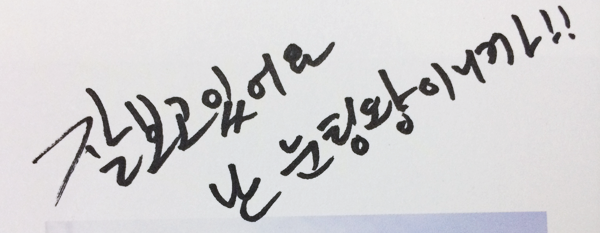 잘보고있어요
난 눈팅왕이니까!!